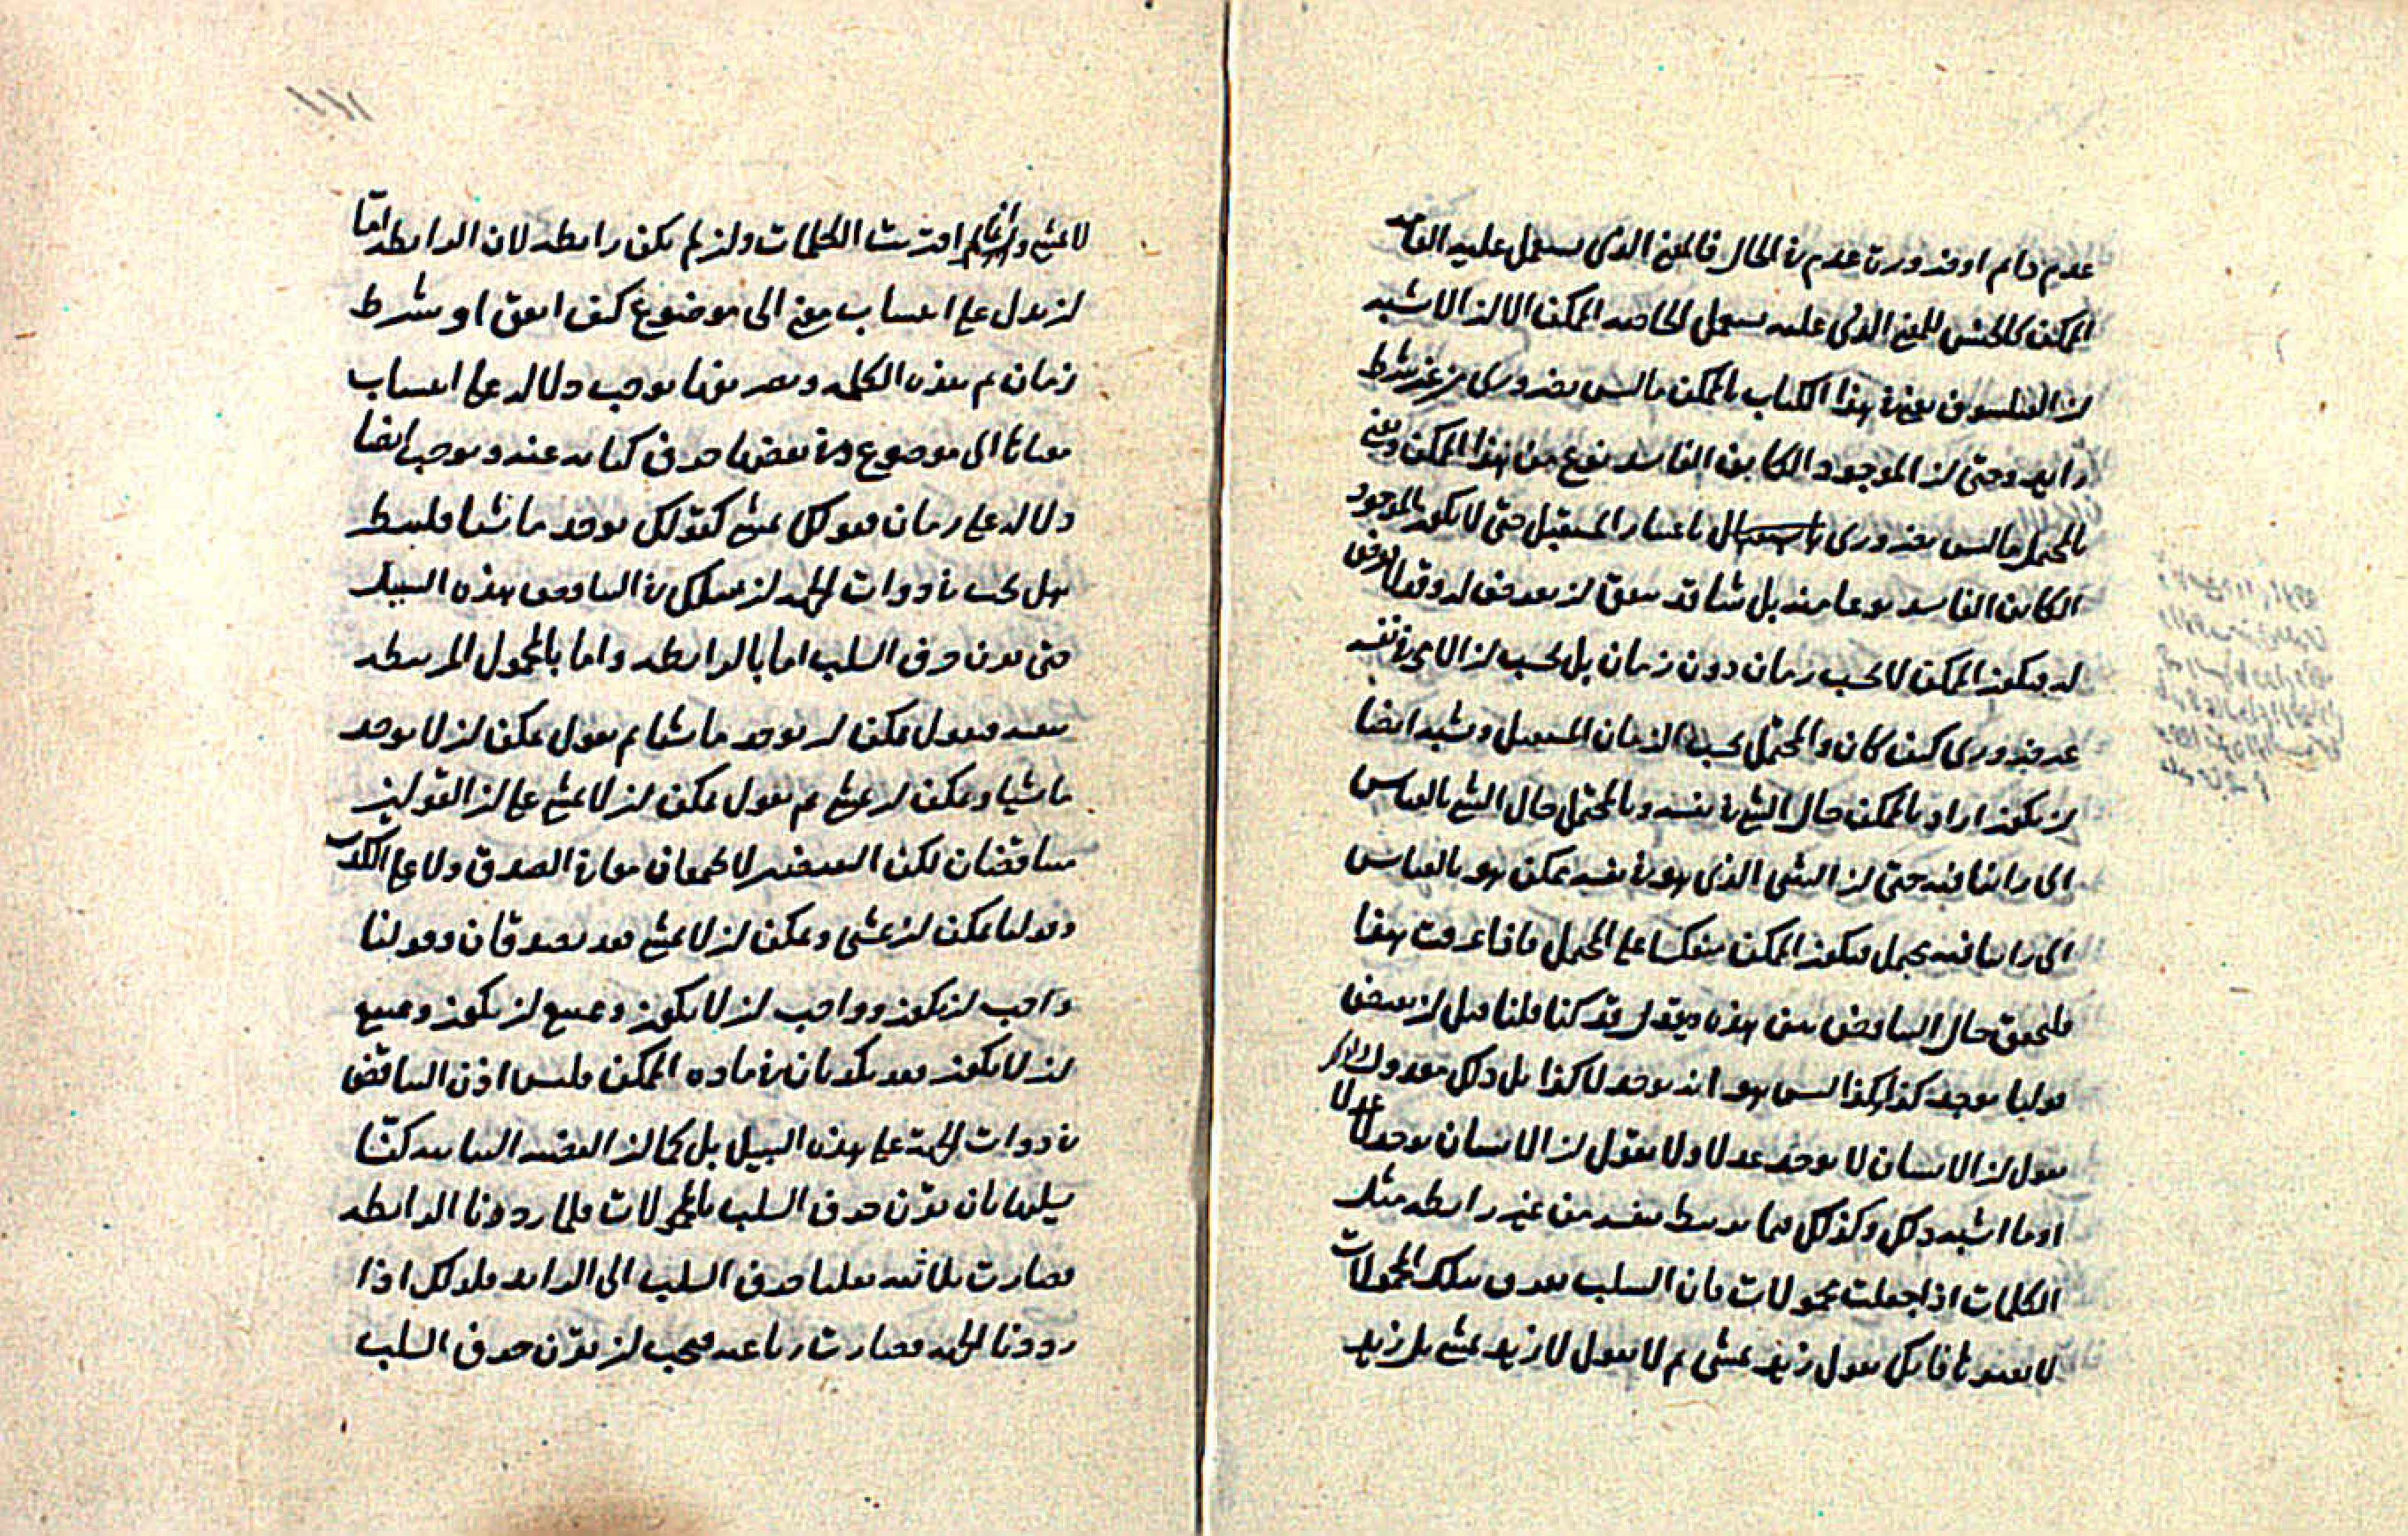 عدم دائم او ضرورة عدم في الحال فالمعنى الذي يستعمل عليه العامة
الممكن كالجنس للمعنى الذي عليه يستعمل الخاصة الممكن الا ان الاشبه
ان الفيلسوف يعني في هذا الكتاب بالممكن ما ليس بضروري من غير شرط
رابع وحتى ان الموجود الكائن الفاسد نوع من هذا الممكن ويعني
بالمحتمل ما ليس بضروري باعتبار المستقبل حتى لا يكون الموجود
الكائن الفاسد نوعا منه بل شيئا قد يتفق ان يعرض له وقد لا يعرض
له فيكون الممكن لا بحسب زمان دون زمان بل بحسب ان الامر في نفسه
غير ضروري كيف كان والمحتمل بحسب الزمان المستقبل ويشبه ايضا
ان يكون اراد بالممكن حال الشيء في نفسه وبالمحتمل حال الشيء بالقياس
الى راينا فيه حتى ان الشي الذي هو في نفسه ممكن هو بالقياس
الى راينا فيه محتمل فيكون الممكن منعكسا على المحتمل فاذا عرفت هذا
فلنحقق حال التناقض بين هذه فنقول قد كنا قلنا قبل ان نقيض
قولنا يوجد كذا كذا ليس هو انه يوجد لا كذا بل ذلك معدول
نقول ان الانسان لا يوجد عدلا ولا نقول ان الانسان يوجد لا عدلا
او ما اشبه ذلك وكذلك فيما يرتبط بنفسه من غير رابطة مثل
الكلمات اذا جعلت محمولات فان السلب يقرن بتلك المحمولات
لا بغيرها فانك تقول زيد يمشي ثم لا تقول لا زيد يمشي بل زيد
لا يمشي وانما اقترنت الكلمات وان لم يكن رابطة لان الرابطة اما
ان تدل على انتساب معنى الى موضوع كيف اتفق او بشرط
زمان ثم هذه الكلمة وتصريفها يوجب دلالة على انتساب
معناها الى موضوع وفي بعضها حرف كناية عنه ويوجب ايضا
دلالة على زمان فقولك يمشي كقولك يوجد ماشيا فلينظر
هل يجب في ذوات الجهة ان نسلك في التناقض هذه السبيل
حتى يقرن حرف السلب اما بالرابطة واما بالمحمول المرتبط
بنفسه فنقول يمكن ان يوجد ماشيا ثم نقول يمكن ان لا يوجد
ماشيا ويمكن ان يمشي ثم نقول يمكن ان لا يمشي على ان القولين
متناقضان لكن النقيضين لا يجتمعان معا في الصدق ولا على الكذب
وقولنا يمكن ان يمشي ويمكن ان لا يمشي قد يصدقان وقولنا
واجب ان يكون وواجب ان لا يكون وممتنع ان يكون وممتنع
ان لا يكون قد يكذبان في مادة الممكن فليس اذن التناقض
في ذوات الجهة على هذه السبيل بل كما ان القضية الثنائية كنا
نسلبها بان نقرن حرف السلب بالمحمولات فلما رددنا الرابطة
فصارت ثلاثية نقلنا حرف السلب الى الرابطة فلذلك اذا
رددنا الجهة فصارت رباعية فيجب ان نقرن حرف السلب